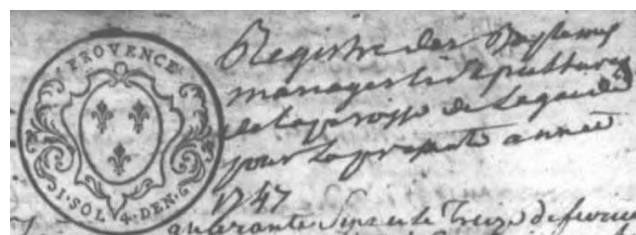 PROVENCE
1·SOL 4·DEN·
Registre des Baptemes
mariages et sepultures
de la paroisse de
pour la presente année
1747
quarante sept et le treize de fevrier